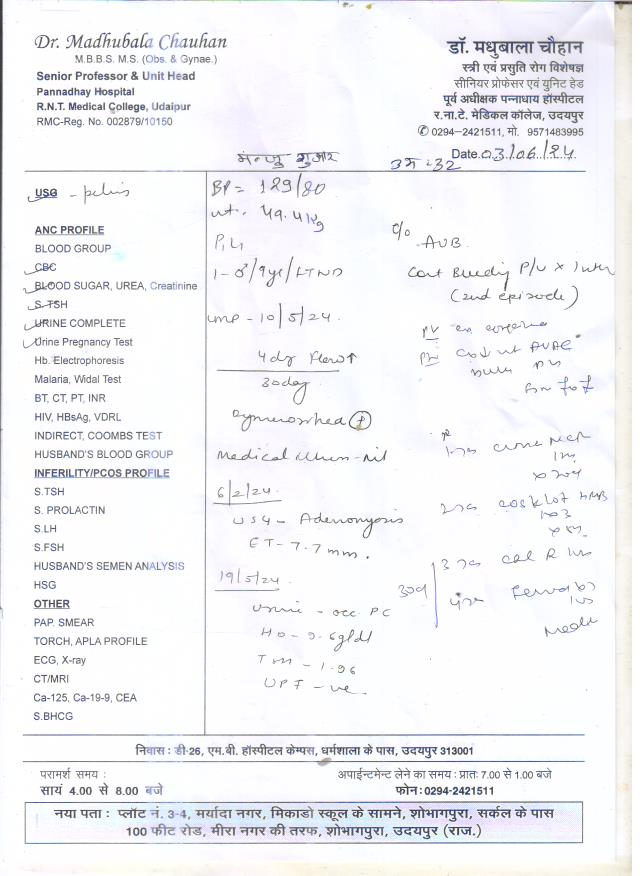 Dr. Madhubala Chauhan
M.B.B.S. M.S. (Obs. & Gynae.)
Senior Professor & Unit Head
Pannadhay Hospital
R.N.T. Medical College, Udaipur
RMC-Reg. No. 002879/10150
डॉ. मधुबाला चौहान
स्त्री एवं प्रसुति रोग विशेषज्ञ
सीनियर प्रोफेसर एवं युनिट हेड
पूर्व अधीक्षक पन्नाधाय हॉस्पीटल
र.ना.टे. मेडिकल कॉलेज, उदयपुर
✆ 0294-2421511, मो. 9571483995
मन्जु गुजर
उम्र-32
Date. 03/06/24
USG - pelvis
ANC PROFILE
BLOOD GROUP
CBC
BLOOD SUGAR, UREA, Creatinine
S.TSH
URINE COMPLETE
Urine Pregnancy Test
Hb. Electrophoresis
Malaria, Widal Test
BT, CT, PT, INR
HIV, HBsAg, VDRL
INDIRECT, COOMBS TEST
HUSBAND'S BLOOD GROUP
INFERILITY/PCOS PROFILE
S.TSH
S. PROLACTIN
S.LH
S.FSH
HUSBAND'S SEMEN ANALYSIS
HSG
OTHER
PAP. SMEAR
TORCH, APLA PROFILE
ECG, X-ray
CT/MRI
Ca-125, Ca-19-9, CEA
S.BHCG
BP = 129/80
wt. 49.4 kg
P1L1
1-♂/9yr/FTND
LMP - 10/5/24.
4dy flow↑
30day
Dysmenorrhea (+)
Medical illness - Nil
6/2/24.
USG - Adenomyosis
ET - 7.7 mm.
19/5/24.
Urine - occ. PC
Hb - 9.6g/dl
TSH - 1.96
UPT - ve
c/o AUB
Cont Bleeding P/V x
(2nd episode)
निवास : डी-26, एम.बी. हॉस्पीटल केम्पस, धर्मशाला के पास, उदयपुर 313001
परामर्श समय :
सायं 4.00 से 8.00 बजे
अपाईन्टमेन्ट लेने का समय : प्रातः 7.00 से 1.00 बजे
फोन : 0294-2421511
नया पता : प्लॉट नं. 3-4, मर्यादा नगर, मिकाडो स्कूल के सामने, शोभागपुरा, सर्कल के पास
100 फीट रोड, मीरा नगर की तरफ, शोभागपुरा, उदयपुर (राज.)